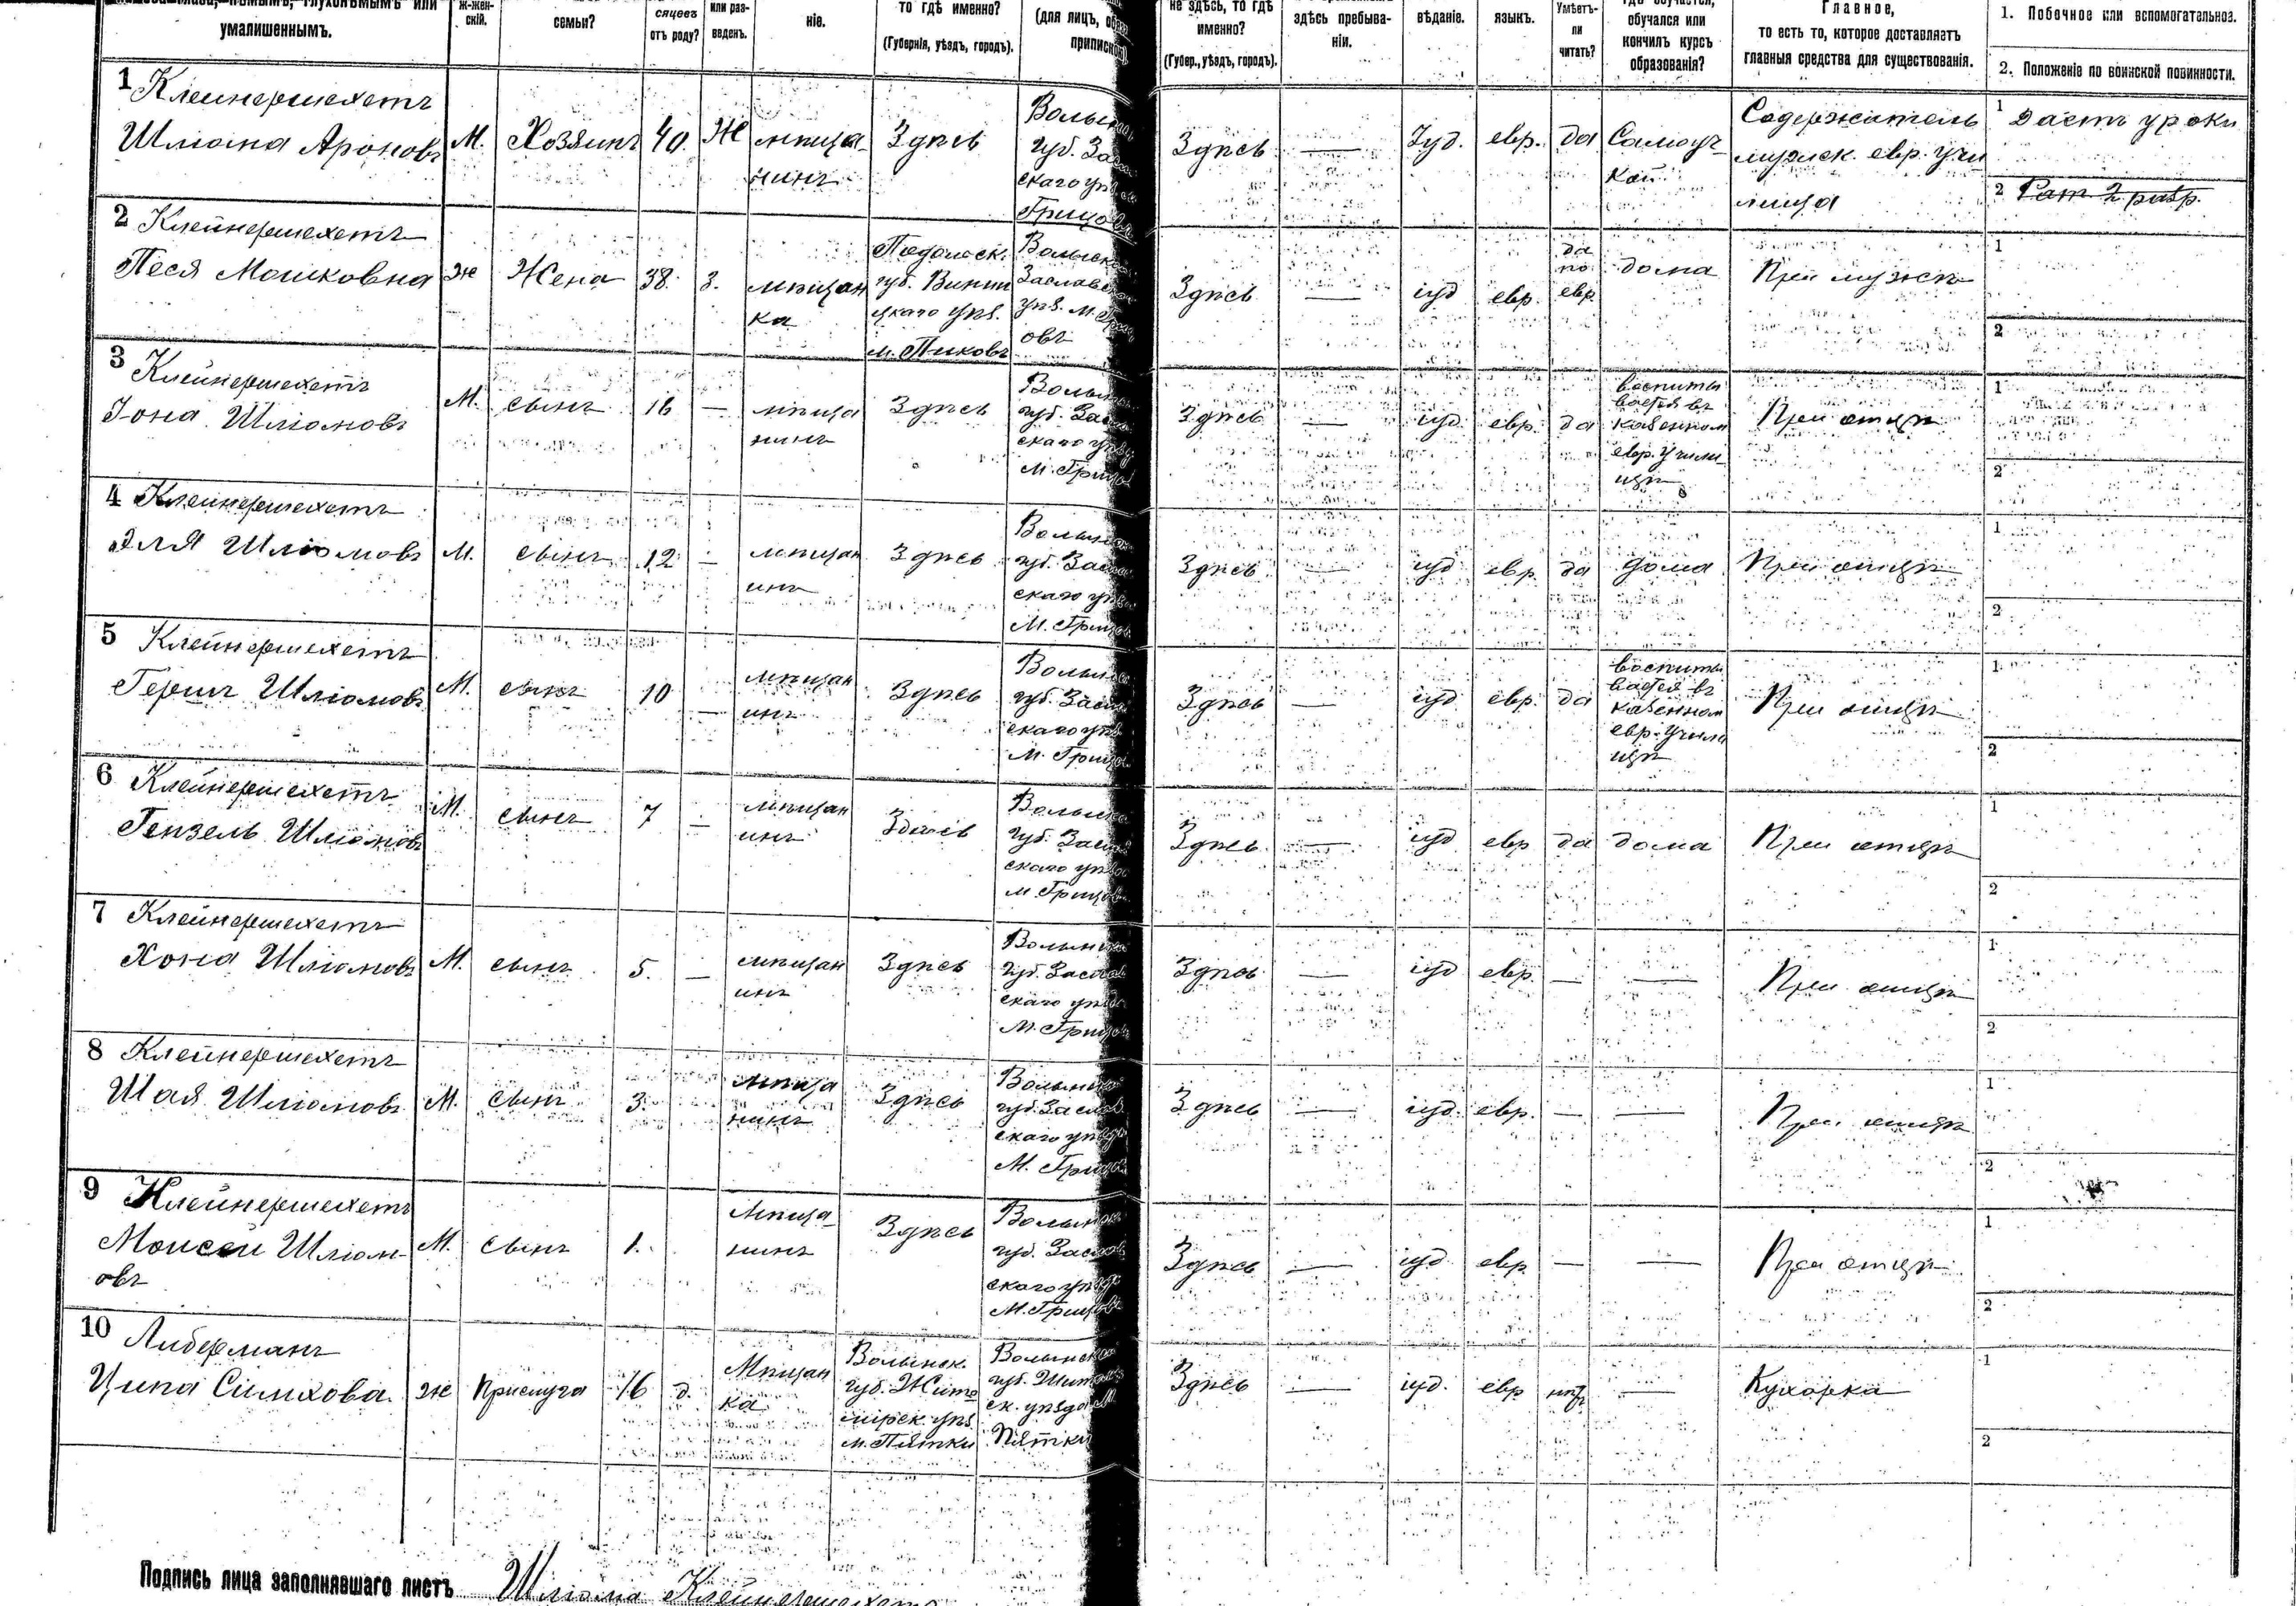 умалишеннымъ.
ж-жен-
скій.
семьи?
сяцевъ
отъ роду?
или раз-
веденъ.
ніе.
то гдѣ именно?
(Губернія, уѣздъ, городъ).
(для лицъ,
не здѣсь, то гдѣ
именно?
(Губер., уѣздъ, городъ).
здѣсь пребыва-
ніи.
вѣданіе.
языкъ.
Умѣетъ-
ли
читать?
обучался или
кончилъ курсъ
образованія?
Главное,
то есть то, которое доставляетъ
главныя средства для существованія.
1. Побочное или вспомогательное.
2. Положеніе по воинской повинности.
1 Клейнершехетъ
Шліома Ароновъ
М.
Хозяинъ
40
Ж
мѣща
нинъ
Здѣсь
Волын
губ. Зас
скаго уѣз
Грицов
Здѣсь
—
Іуд.
евр.
да
Самоуч
кой
Содержатель
мужск. евр. учи
лища
1 Даетъ уроки
2 Рат 2 разр.
2 Клейнершехетъ
Песя Мошковна
Ж
Жена
38.
З.
мѣщан
ка
Подольск.
губ. Винни
цкаго уѣз.
м. Пиковъ
Волынск
Заславск
уѣз. м. Гриц
овъ
Здѣсь
—
іуд
евр.
да
по
евр.
дома
При мужѣ
1
2
3 Клейнершехетъ
Іона Шліомовъ
М.
сынъ
16
—
мѣща
нинъ
Здѣсь
Волын
губ. Засл
скаго уѣз
м. Грицов
Здѣсь
—
іуд
евр.
да
воспиты
вается въ
казенном
евр. учили
щѣ
При отцѣ
1
2
4 Клейнершехетъ
Эля Шліомовъ
М.
сынъ
12
—
мѣщан
инъ
Здѣсь
Волын
губ. Засл
скаго уѣз
М. Грицов
Здѣсь
—
іуд
евр.
да
дома
При отцѣ
1
2
5 Клейнершехетъ
Гершъ Шліомовъ
М.
сынъ
10
—
мѣщан
инъ
Здѣсь
Волын
губ. Засл
скаго уѣз
М. Грицов
Здѣсь
—
іуд
евр.
да
воспиты
вается въ
казенном
евр. учили
щѣ
При отцѣ
1
2
6 Клейнершехетъ
Гензель Шліомовъ
М.
сынъ
7
—
мѣщан
инъ
Здѣсь
Волын
губ. Засл
скаго уѣз
м. Грицов
Здѣсь
—
іуд
евр
да
дома
При отцѣ
1
2
7 Клейнершехетъ
Хона Шліомовъ
М.
сынъ
5.
—
мѣщан
инъ
Здѣсь
Волын
губ. Заслав
скаго уѣз
М. Грицов
Здѣсь
—
іуд
евр.
—
—
При отцѣ
1
2
8 Клейнершехетъ
Шая Шліомовъ
М.
сынъ
3.
мѣща
нинъ
Здѣсь
Волынск
губ. Заслав
скаго уѣзд
М. Грицов
Здѣсь
—
іуд.
евр.
—
—
При отцѣ
1
2
9 Клейнершехетъ
Моисей Шліом-
овъ
М.
сынъ
1.
мѣща-
нинъ
Здѣсь
Волынск
губ. Заслав
скаго уѣзд
М. Грицовъ
Здѣсь
—
іуд.
евр
—
—
При отцѣ
1
2
10 Либерманъ
Ципа Симхова
Ж
прислуга
16
д.
Мѣщан
ка
Волынск.
губ. Жито
мірск. уѣз.
м. Пятки
Волынск
губ. Житом
ск. уѣзда М
Пятки
Здѣсь
—
іуд.
евр
нѣтъ
—
Кухарка
1
2
Подпись лица заполнявшаго листъ Шліома Клейнершехетъ